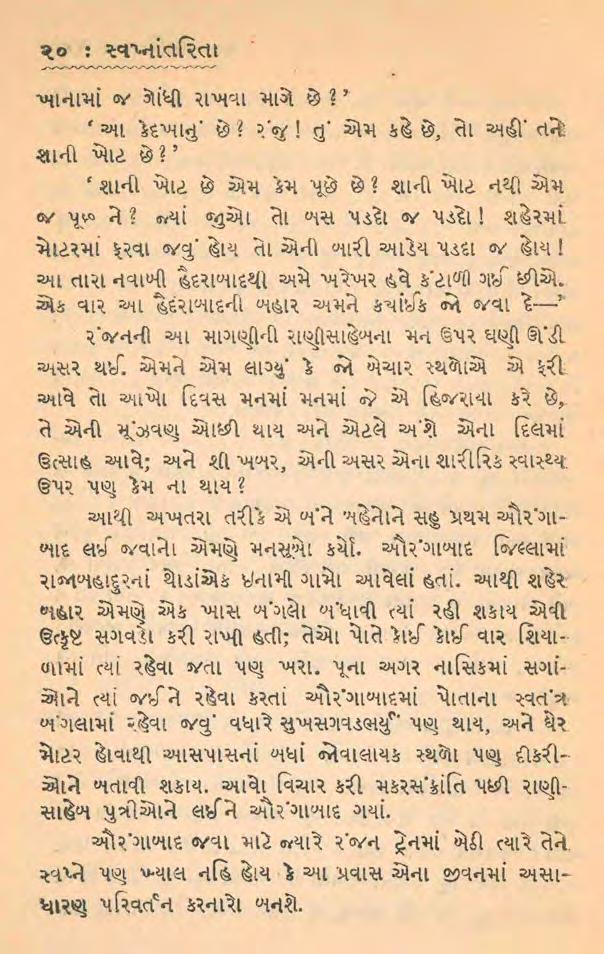 ૨૦ : સ્વપ્નાંતરિતા
ખાનામાં જ ગોંધી રાખવા માગે છે?’
‘આ કેદખાનું છે? રંજુ! તું એમ કહે છે, તો અહીં તને
શાની ખોટ છે?’
‘શાની ખોટ છે એમ કેમ પૂછે છે? શાની ખોટ નથી એમ
જ પૂછ ને? જ્યાં જુઓ તો બસ પડદો જ પડદો! શહેરમાં
મોટરમાં ફરવા જવું હોય તો એની બારી આડેય પડદા જ હોય!
આ તારા નવાબી હૈદરાબાદથી અમે ખરેખર હવે કંટાળી ગઈ છીએ.
એક વાર આ હૈદરાબાદની બહાર અમને કયાંઈક જો જવા દે—’
રંજનની આ માગણીની રાણીસાહેબના મન ઉપર ઘણી ઊંડી
અસર થઈ. એમને એમ લાગ્યું કે જો બેચાર સ્થળોએ એ ફરી
આવે તો આખો દિવસ મનમાં મનમાં જે એ હિજરાયા કરે છે,
તે એની મૂંઝવણ ઓછી થાય અને એટલે અંશે એના દિલમાં
ઉત્સાહ આવે; અને શી ખબર, એની અસર એના શારીરિક સ્વાસ્થ્ય
ઉપર પણ કેમ ના થાય?
આથી અખતરા તરીકે એ બંને બહેનોને સહુ પ્રથમ ઔરંગા-
બાદ લઈ જવાનો એમણે મનસૂબો કર્યો. ઔરંગાબાદ જિલ્લામાં
રાજાબહાદુરનાં થોડાંએક ઇનામી ગામો આવેલાં હતાં. આથી શહેર
બહાર એમણે એક ખાસ બંગલો બંધાવી ત્યાં રહી શકાય એવી
ઉત્કૃષ્ટ સગવડો કરી રાખી હતી; તેઓ પોતે કોઈ કોઈ વાર શિયા-
ળામાં ત્યાં રહેવા જતા પણ ખરા. પૂના અગર નાસિકમાં સગાં-
ઓને ત્યાં જઈને રહેવા કરતાં ઔરંગાબાદમાં પોતાના સ્વતંત્ર
બંગલામાં રહેવા જવું વધારે સુખસગવડભર્યું પણ થાય, અને ઘેર
મોટર હોવાથી આસપાસનાં બધાં જોવાલાયક સ્થળો પણ દીકરી-
ઓને બતાવી શકાય. આવો વિચાર કરી મકરસંક્રાંતિ પછી રાણી-
સાહેબ પુત્રીઓને લઈને ઔરંગાબાદ ગયાં.
ઔરંગાબાદ જવા માટે જ્યારે રંજન ટ્રેનમાં બેઠી ત્યારે તેને
સ્વપ્ને પણ ખ્યાલ નહિ હોય કે આ પ્રવાસ એના જીવનમાં અસા-
ધારણ પરિવર્તન કરનારો બનશે.